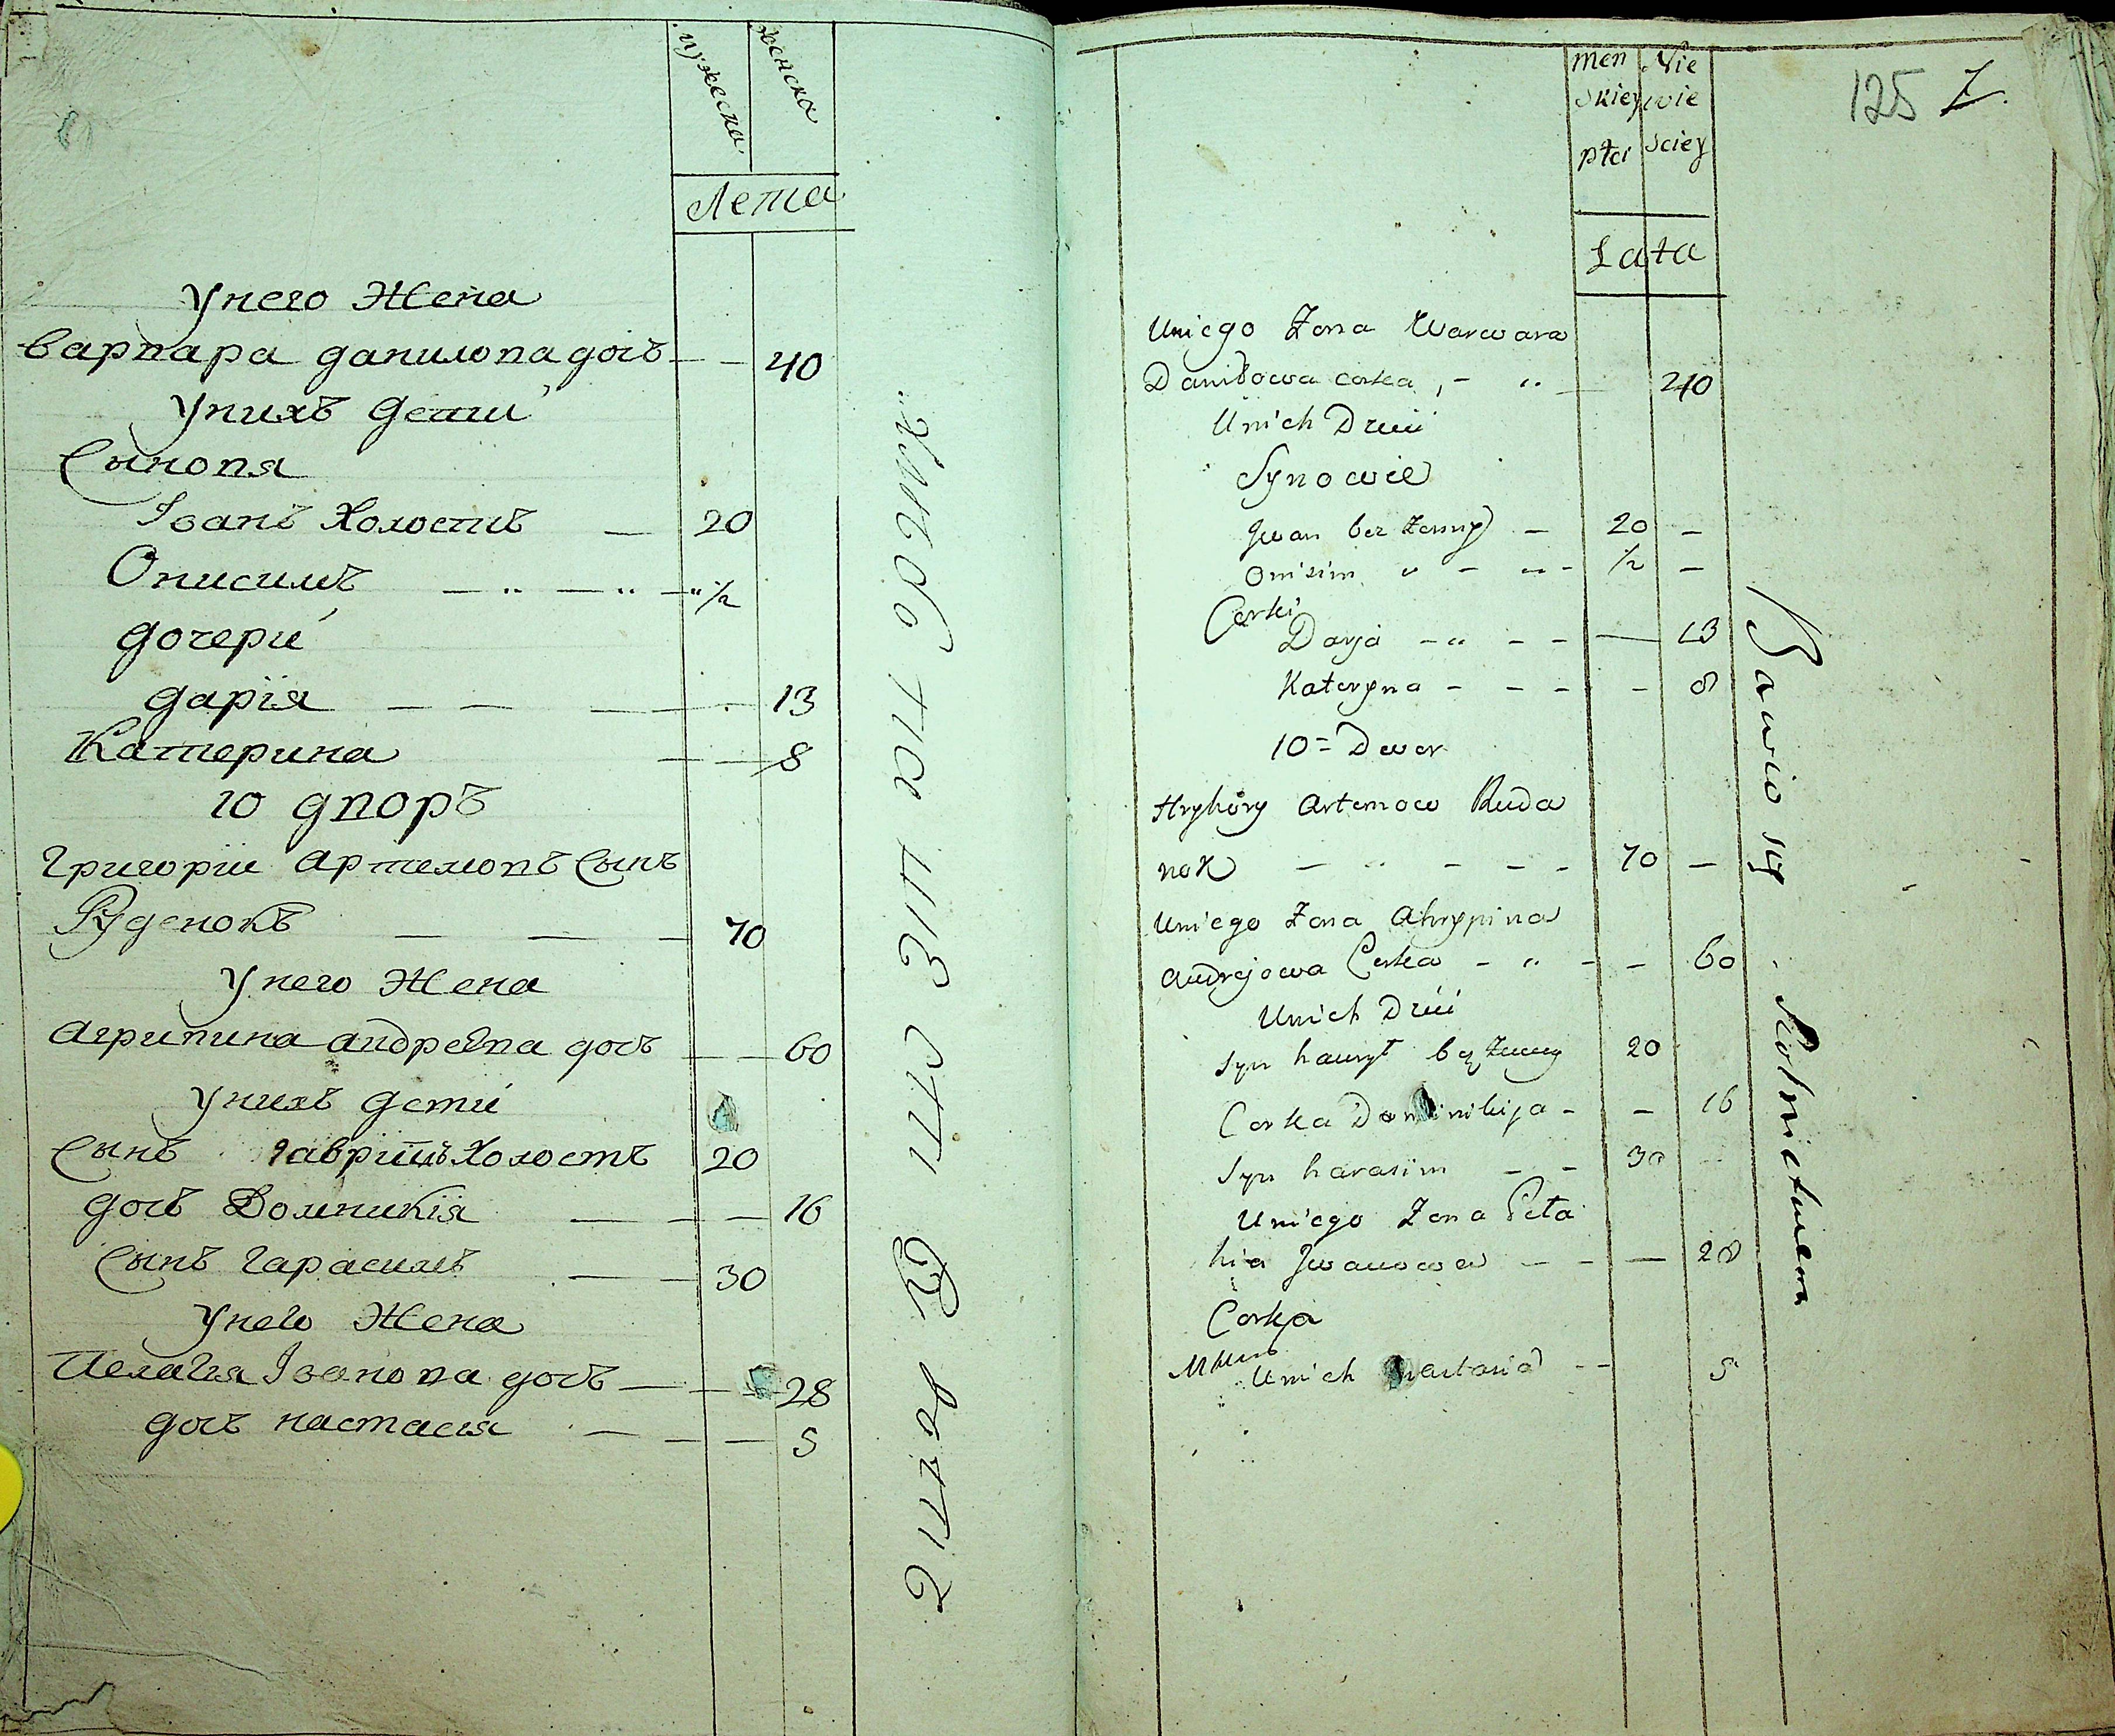 мужеска
женска
Лета
Унего Жена
варвара данилова дочъ 40
Унихъ дети
Сыновя
Іванъ Холостъ 20
Онисимъ 1/2
дочери
дарія 13
Катерина 8
10 дворъ
Григории Артемовъ Сынъ
Руденокъ 70
Унего Жена
Агрипина андреевна дочъ 60
Унихъ дети
Сынъ гаврило Холостъ 20
дочъ Домникія 16
Сынъ гарасимъ 30
Унего Жена
Пелагія Іванова дочъ 28
дочъ настасія 5
125
7
Men Nie
skiey wie
płci sciey
Lata
Uniego Zona Warwara
Daniłowa corka 40
Unich Dzieci
Synowie
Jwan bez zenny 20
Onisim 1/2
Corki
Darja 13
Kateryna 8
10 = Dwor
Hryhory Artemow Ruda
nok 70
Uniego Zona Ahrypina
Andrejowa Corka 60
Unich Dzici
Syn hawrył bez zenny 20
Corka Dominikija 16
Syn harasim 30
Uniego Zona Peła
hia Jwanowa 28
Corka
Unich Nastasia 5